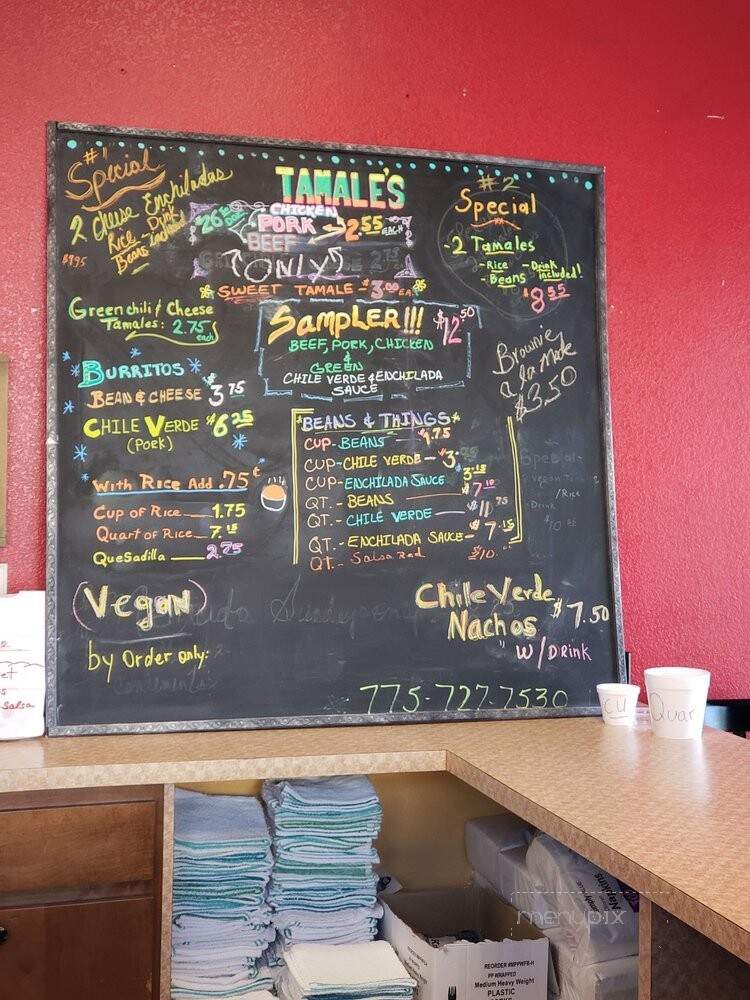 #1
Special
2 Cheese Enchiladas
Rice - Drink
Beans included
TAMALE'S
CHICKEN
PORK
BEEF
2.55 EACH
"ONLY"
SWEET TAMALE - $3.00 EA.
#2
Special
-2 Tamales
-Rice -Drink
-Beans included!
$8.55
Green chili & Cheese
Tamales: 2.75
each
SAMPLER!!! $12.50
BEEF, PORK, CHICKEN
&
GREEN
CHILE VERDE & ENCHILADA
SAUCE
Brownie
a la Mode
$3.50
BURRITOS
BEAN & CHEESE $3.75
CHILE VERDE $6.25
(PORK)
With Rice Add .75¢
Cup of Rice 1.75
Quart of Rice 7.15
QueSadilla 2.75
*BEANS & THINGS*
CUP-BEANS $1.75
CUP-CHILE VERDE
CUP-ENCHILADA SAUCE
QT.- BEANS $7.10
QT.- CHILE VERDE
QT.-ENCHILADA SAUCE $7.15
QT.- Salsa Red $10.
(Vegan)
by Order only:
Chile Verde
Nachos $7.50
W/DRINK
775-727-7530
Salsa
CU
Quar
Napkins
REORDER #MPPWFB-H
PP WRAPPED
Medium Heavy Weight
PLASTIC
menupix